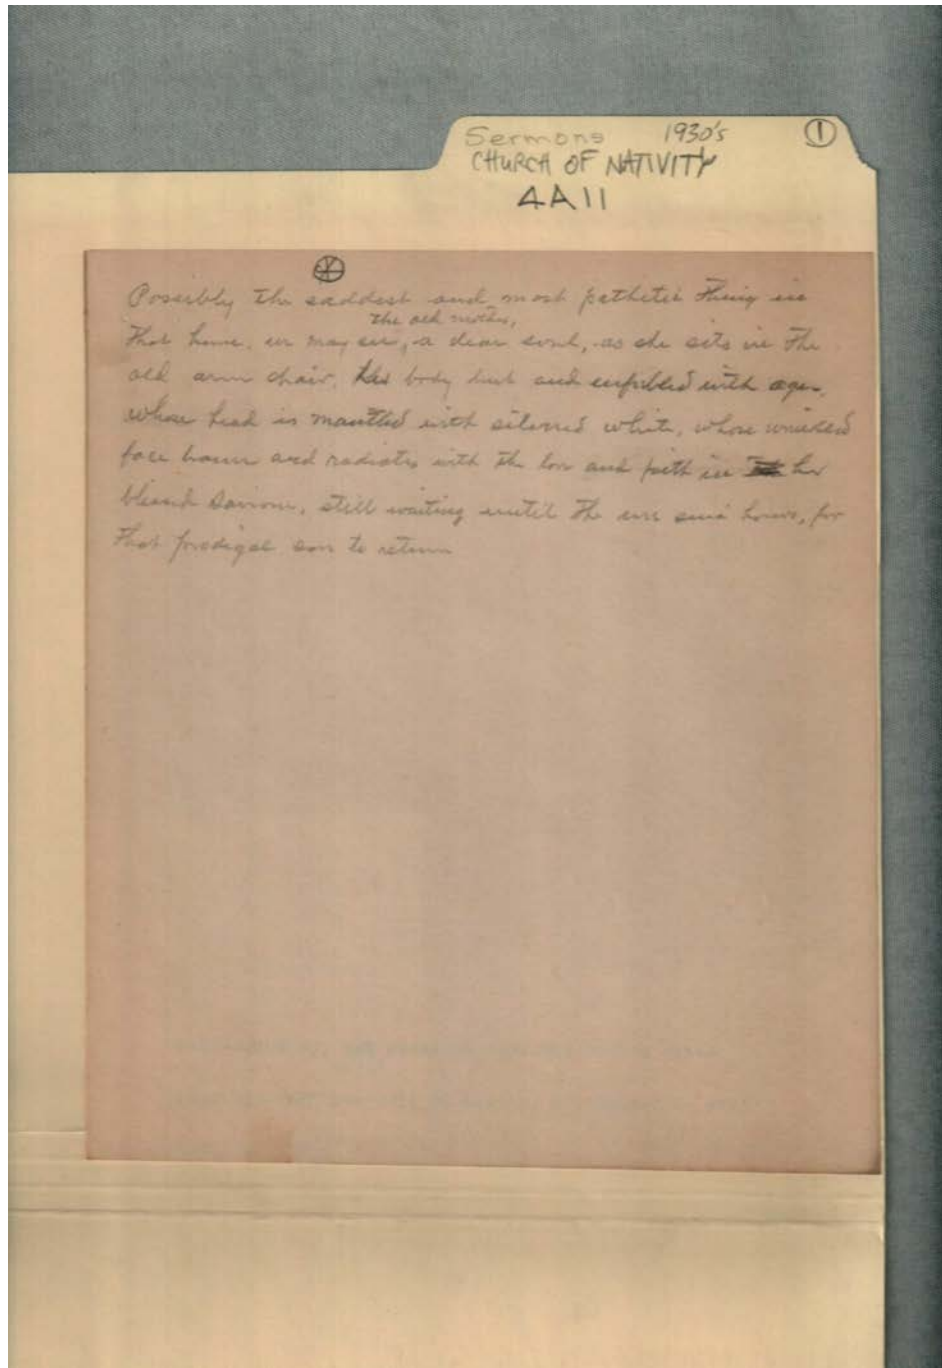 Sermons 1930's ①
CHURCH OF NATIVITY
4A11
Possibly the saddest and most pathetic thing in
the old mother,
that home, we may see, a dear soul, as she sits in the
old arm chair, her body bent and enfeebled with age,
whose head is mantled with silvered white, whose wrinkled
face and radiates with the love and faith in her
blessed Saviour, still waiting until the hours, for
that prodigal son to return